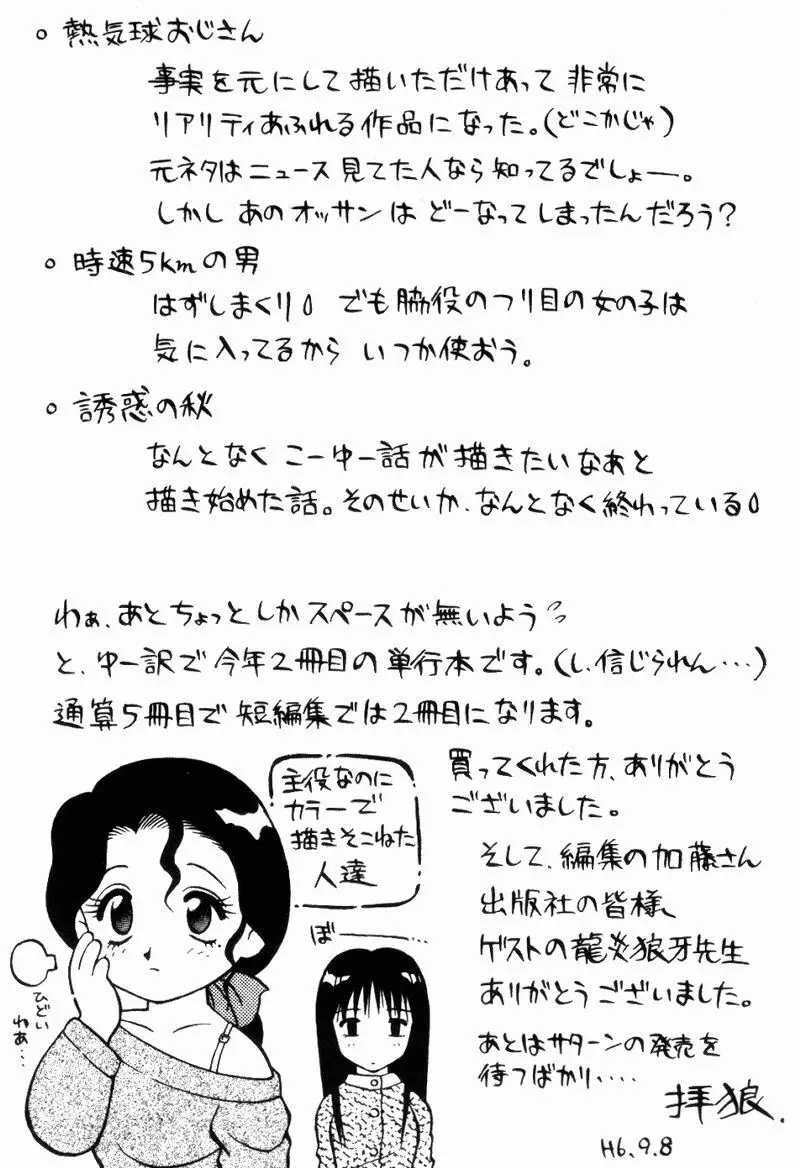 ○ 熱気球おじさん
事実を元にして描いただけあって非常に
リアリティあふれる作品になった。(どこかじゃ)
元ネタはニュース見てた人なら知ってるでしょー。
しかしあのオッサンはどーなってしまったんだろう?
○ 時速5kmの男
はずしまくり でも脇役のつり目の女の子は
気に入ってるから いつか使おう。
○ 誘惑の秋
なんとなく こーゆー話が描きたいなあと
描き始めた話。そのせいか、なんとなく終わっている
わぁ、あとちょっとしかスペースが無いよう
と、ゆー訳で今年2冊目の単行本です。(し、信じられん…)
通算5冊目で短編集では2冊目になります。
買ってくれた方、ありがとう
ございました。
そして、編集の加藤さん
出版社の皆様、
ゲストの龍炎狼牙先生
ありがとうございました。
あとはサターンの発売を
待つばかり‥‥
拝狼.
H6.9.8
主役なのに
カラーで
描きそこねた
人達
ぼー……
ひどい
わぁ…